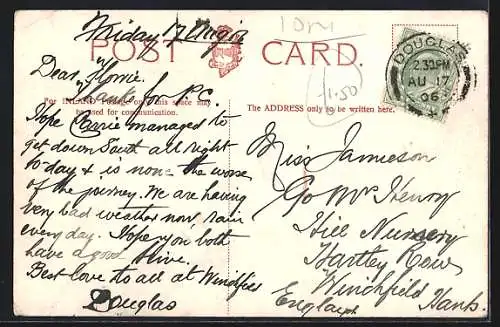 Friday 17 Aug 06
POST CARD.
IOM
1.50
DOUGLAS
2.30PM
AU 17
06
Dear Florrie.
Thanks for P.C.
For INLAND Postage only this space may
be used for communication.
The ADDRESS only to be written here.
Hope Carrie managed to
get down South all right
to-day & is none the worse
of the journey. We are having
very bad weather now, rain
every day. Hope you both
have a good time.
Best love to all at Winchfield
Douglas
Miss Jamieson
c/o Mrs Henry
Hill Nursery
Hartley Row
Winchfield Hants.
England